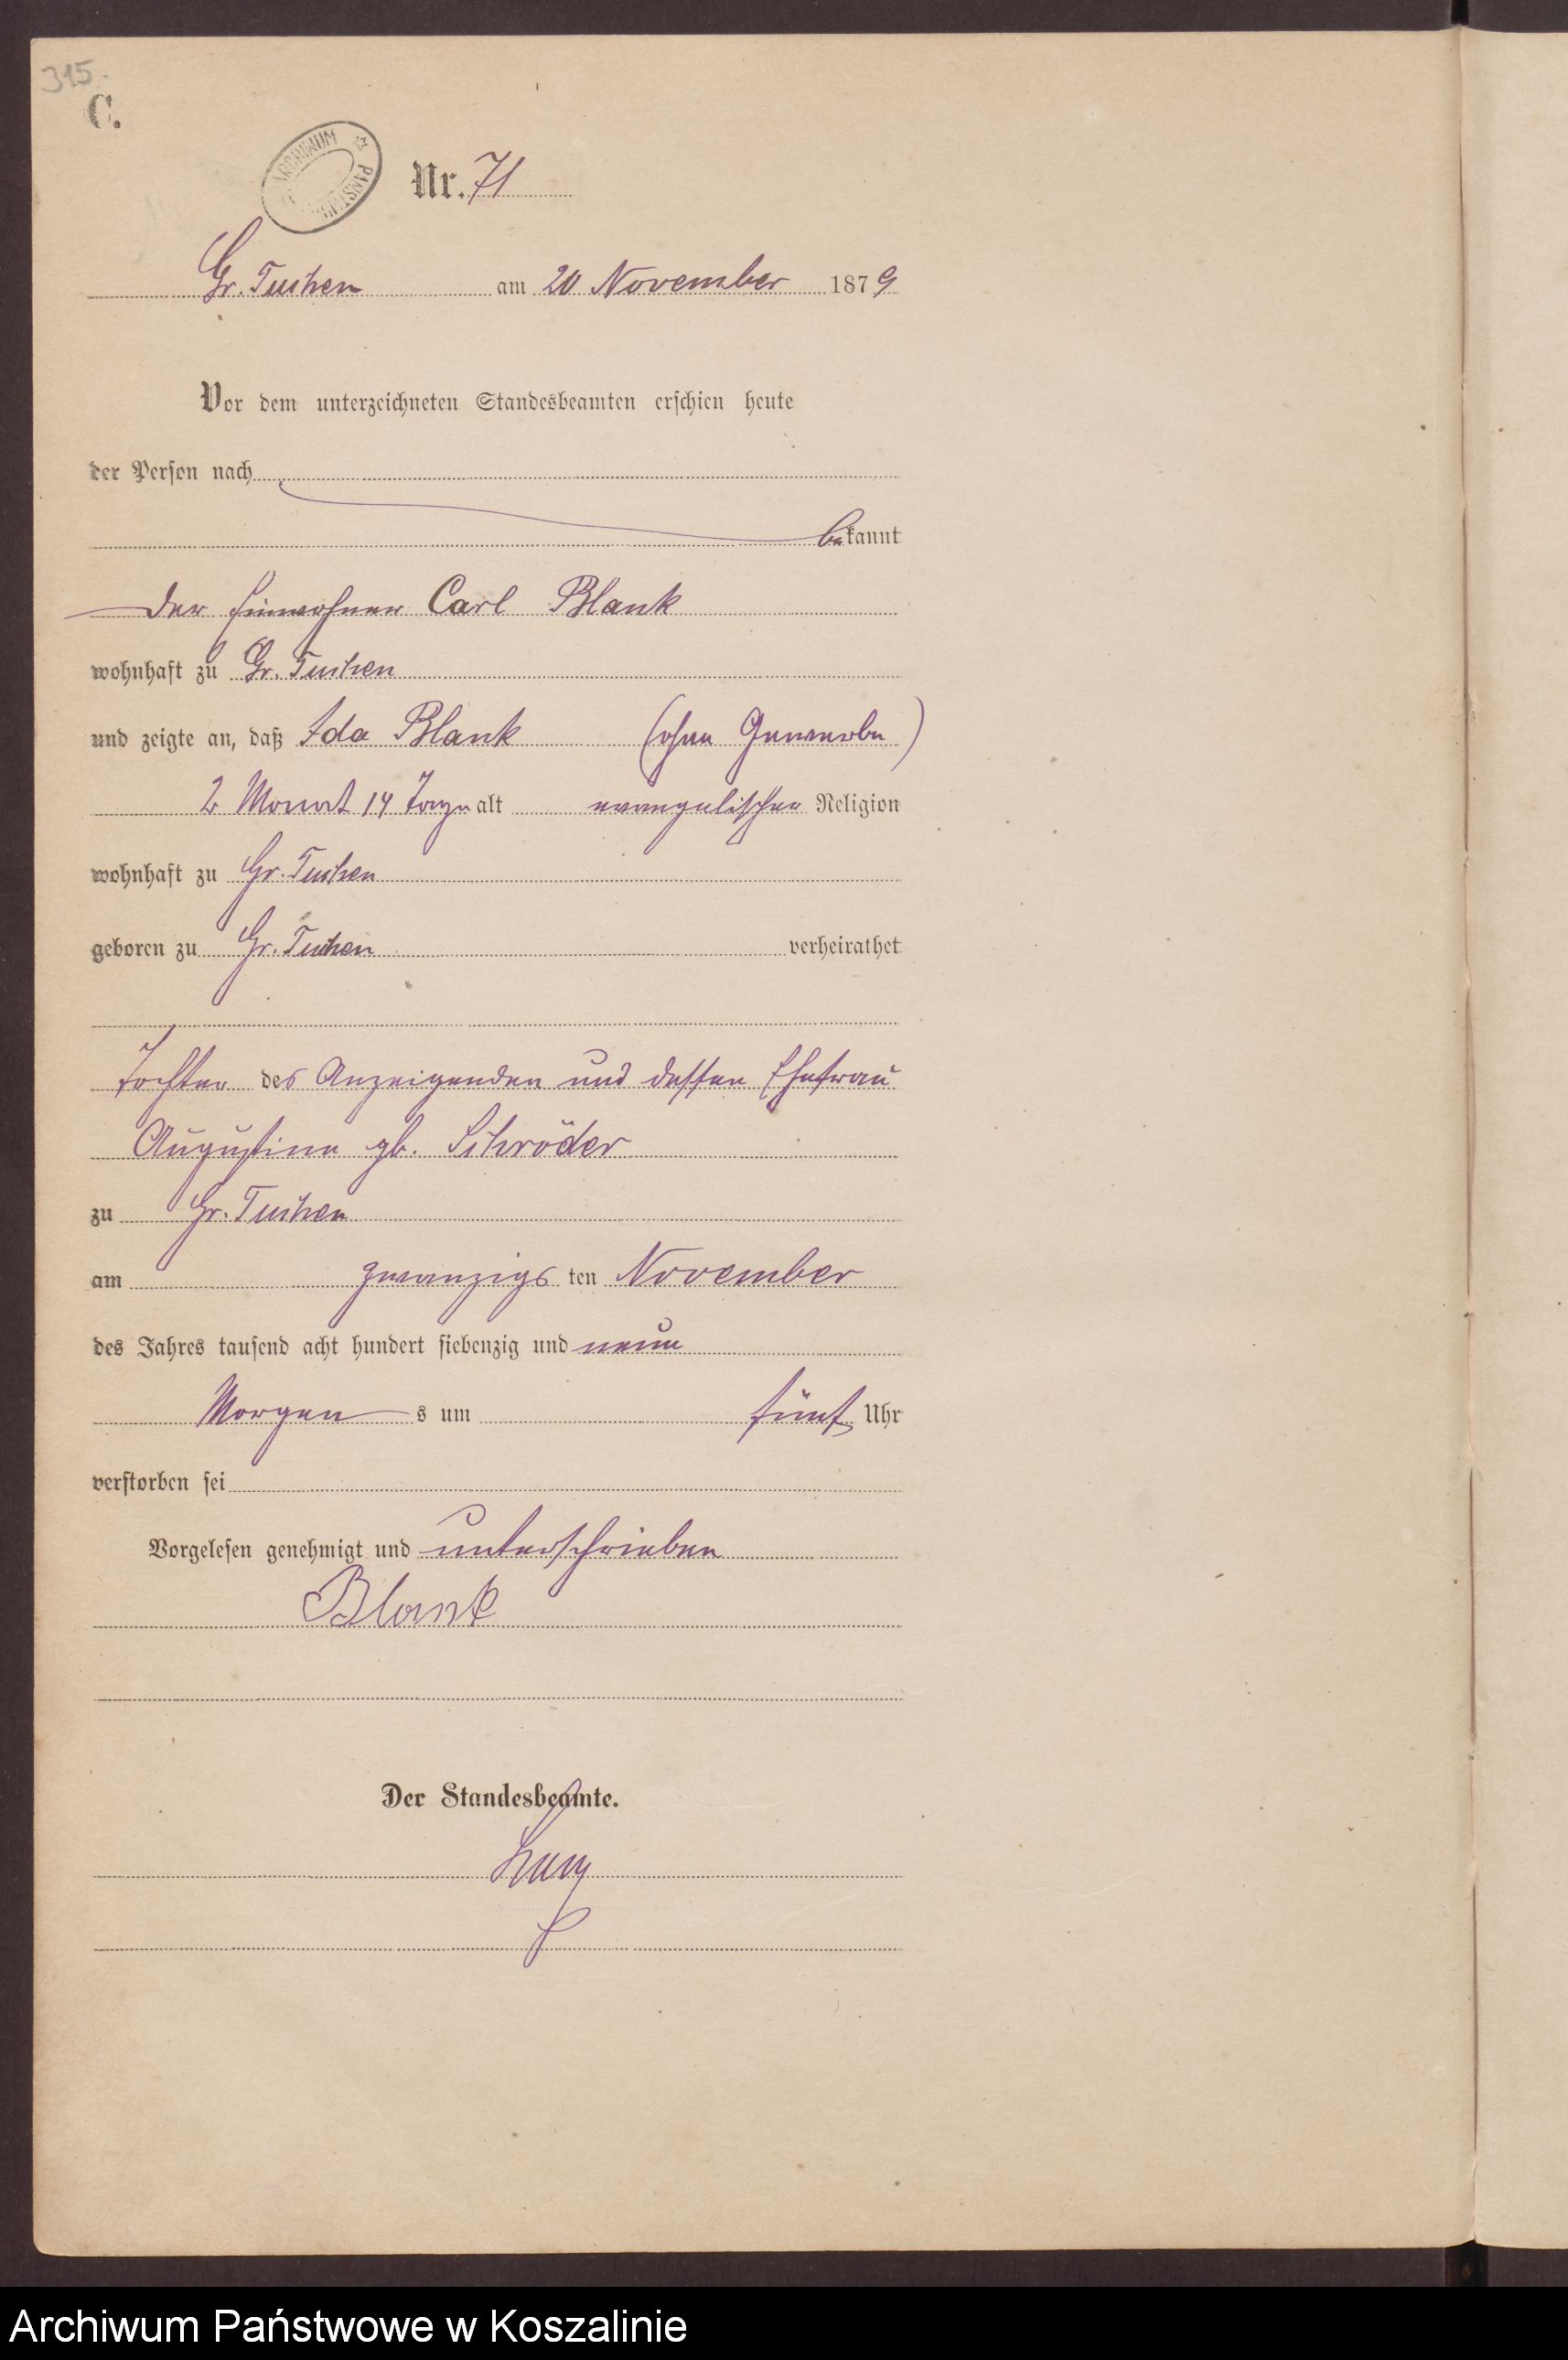 315.
C.
ARCHIWUM PAŃSTW
Nr. 71
Gr. Tuchen am 20 November 1879
Vor dem unterzeichneten Standesbeamten erschien heute
der Person nach
bekannt
der Einwohner Carl Blank
wohnhaft zu Gr. Tuchen
und zeigte an, daß Ida Blank (ohne Gewerbe)
2 Monat 14 Tage alt evangelischer Religion
wohnhaft zu Gr. Tuchen
geboren zu Gr. Tuchen verheirathet
Tochter des Anzeigenden und dessen Ehefrau
Augustine gb. Schröder
zu Gr. Tuchen
am zwanzigsten November
des Jahres tausend acht hundert siebenzig und neun
Morgens um fünf Uhr
verstorben sei
Vorgelesen genehmigt und unterschrieben
Blank
Der Standesbeamte.
Archiwum Państwowe w Koszalinie